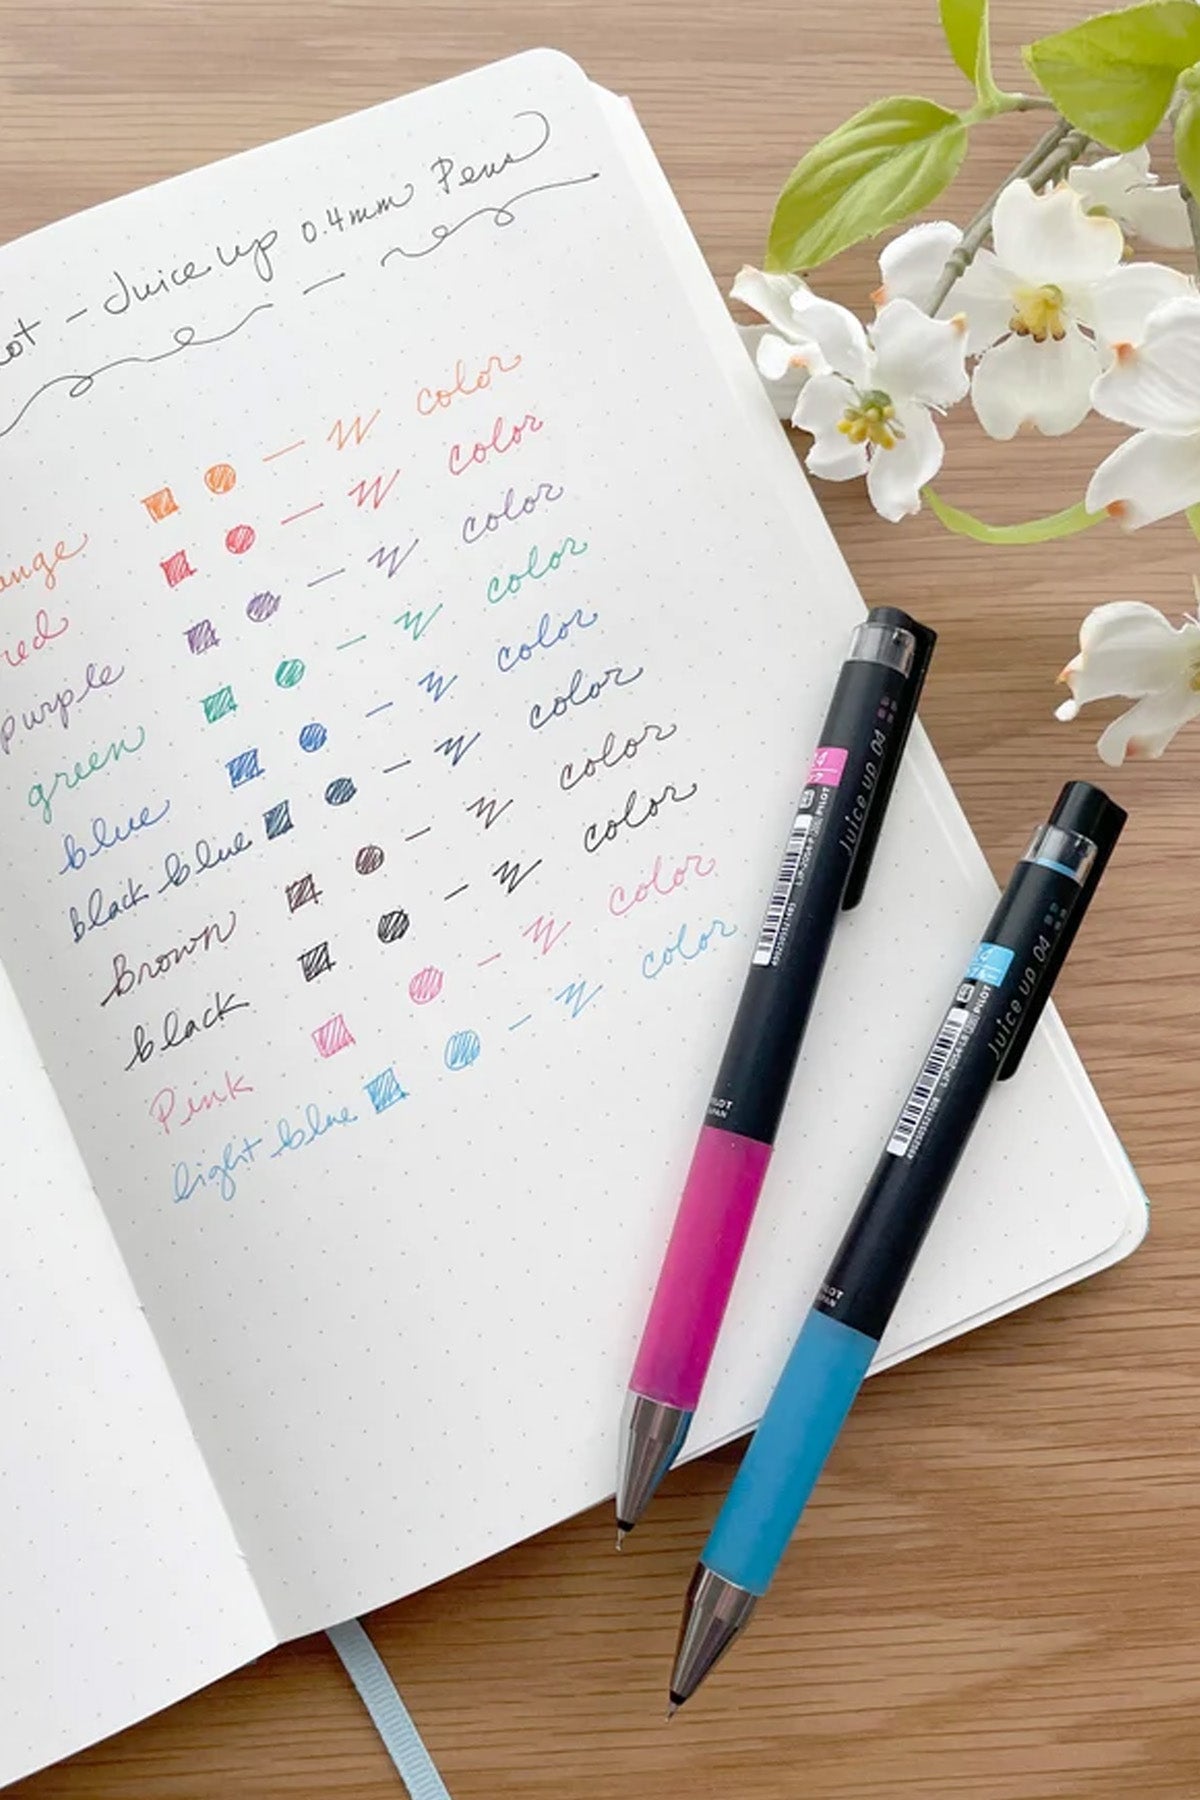 ot - Juice up 0.4mm Pens
ange color
red color
purple color
green color
blue color
black blue color
Brown color
black color
Pink color
light blue color
Juice up 04
PILOT
PILOT
JAPAN
Juice up 04
PILOT
PILOT
JAPAN